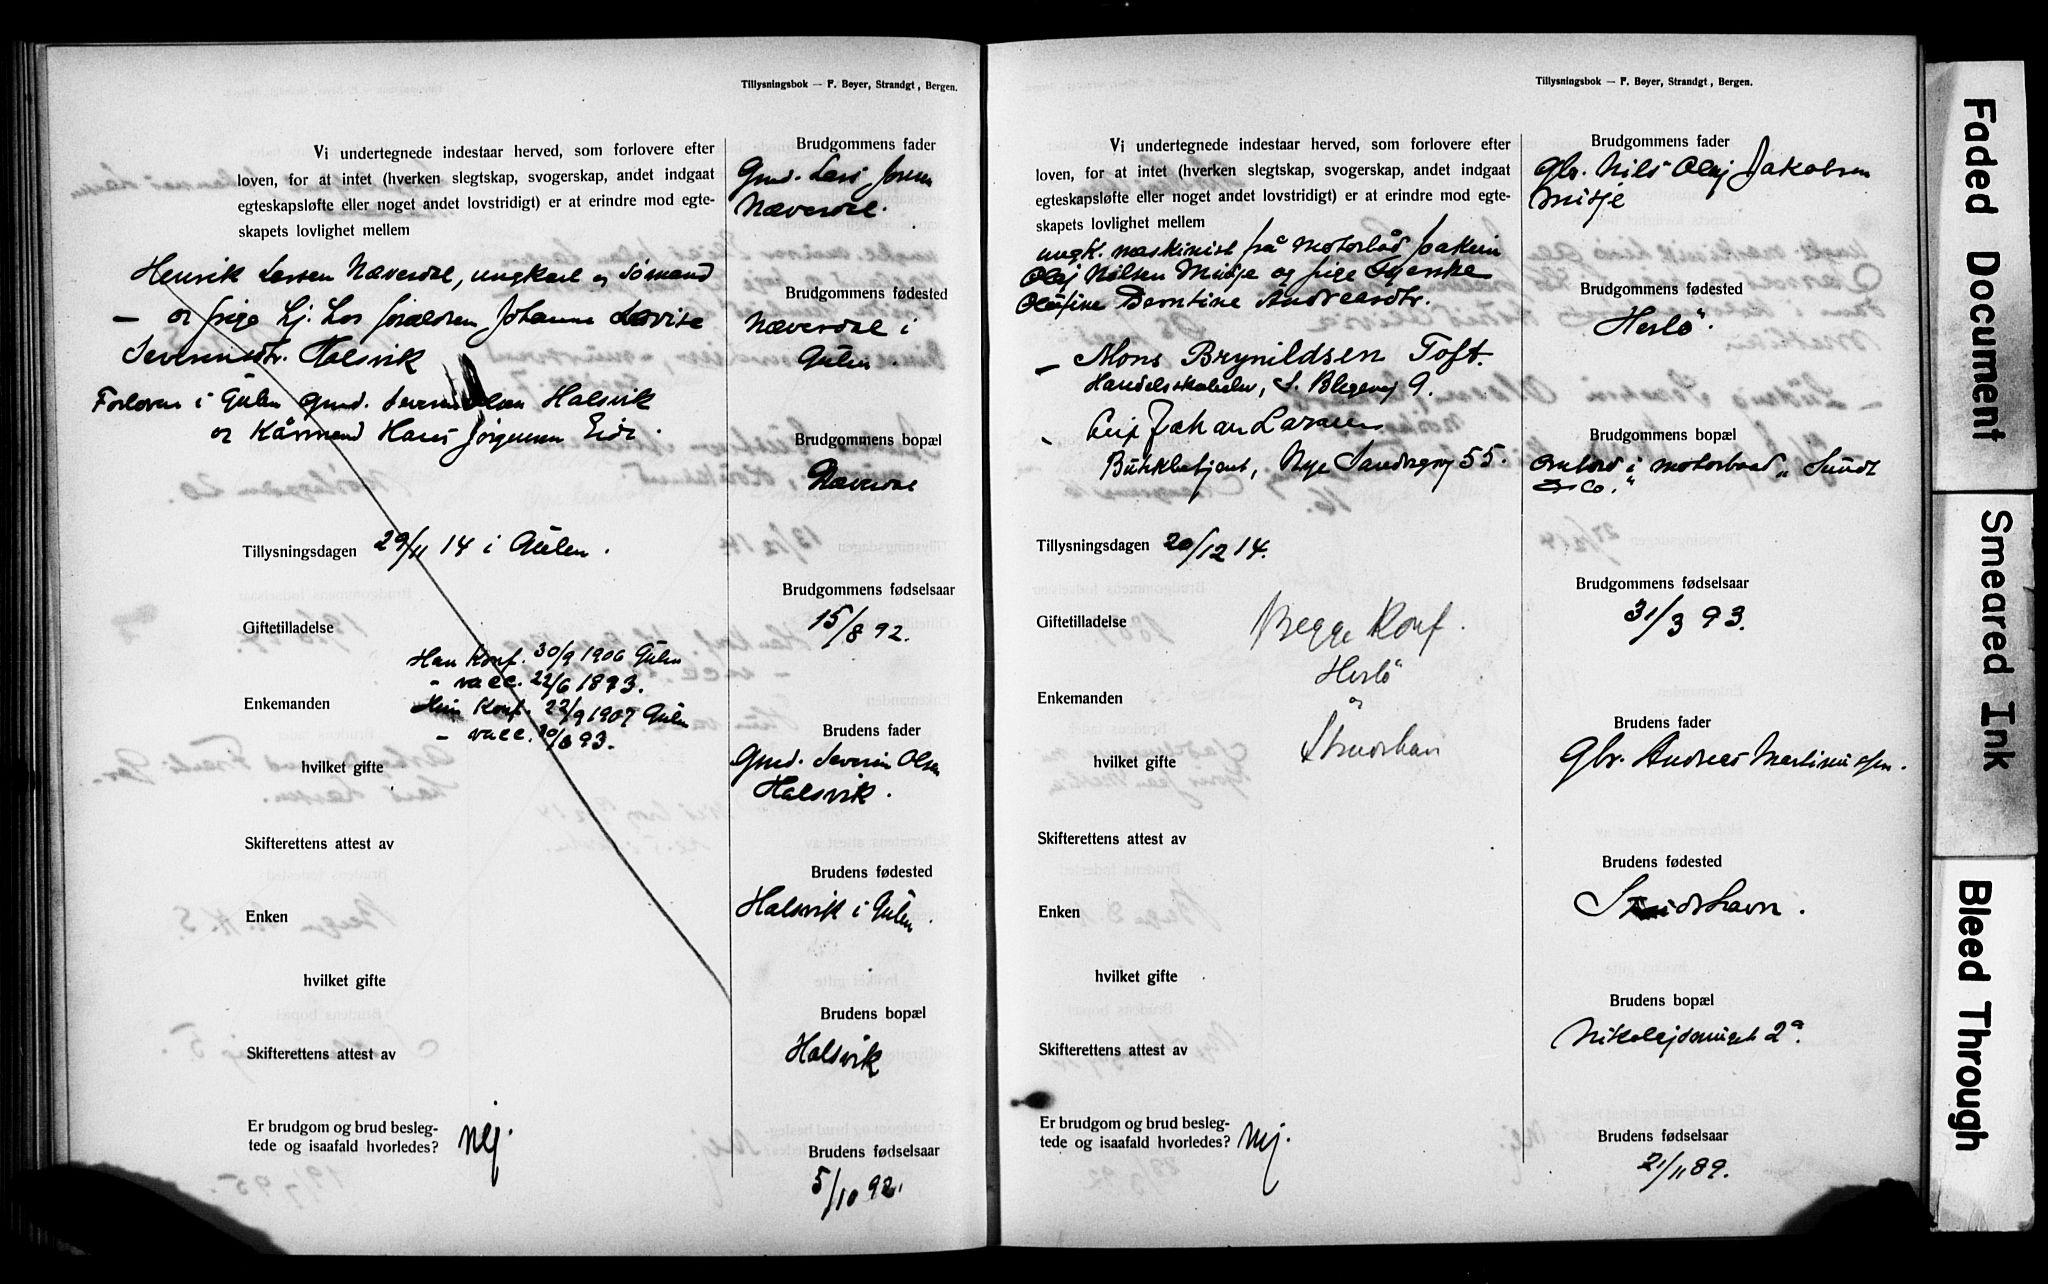 Tillysningsbok — F. Beyer, Strandgt, Bergen.
Vi undertegnede indestaar herved, som forlovere efter
loven, for at intet (hverken slegtskap, svogerskap, andet indgaat
egteskapsløfte eller noget andet lovstridigt) er at erindre mod egte-
skapets lovlighet mellem
Henrik Larsen Næverdal, ungkarl og sømand
— og frige hj. hos forældren Johanne Lovise
Severinsdtr. Halsvik
Forlovere i Gulen Gmd. Severin Olsen Halsvik
og Kårmand Hans Jørgensen Eide.
Tillysningsdagen 29/11 14 i Gulen.
Giftetilladelse
Han Konf. 30/9 1906 Gulen
- vacc. 22/6 1893.
Enkemanden Hun Konf. 22/9 1907 Gulen
- vacc. 20/6 93.
hvilket gifte
Skifterettens attest av
Enken
hvilket gifte
Skifterettens attest av
Er brudgom og brud besleg-
tede og isaafald hvorledes? Nej.
Brudgommens fader
Gmd. Lars Jensen
Næverdal.
Brudgommens fødested
Næverdal i
Gulen.
Brudgommens bopæl
Næverdal
Brudgommens fødselsaar
15/8 92.
Brudens fader
Gmd. Severin Olsen
Halsvik.
Brudens fødested
Halsvik i Gulen.
Brudens bopæl
Halsvik
Brudens fødselsaar
5/10 92.
Tillysningsbok — F. Beyer, Strandgt, Bergen.
Vi undertegnede indestaar herved, som forlovere efter
loven, for at intet (hverken slegtskap, svogerskap, andet indgaat
egteskapsløfte eller noget andet lovstridigt) er at erindre mod egte-
skapets lovlighet mellem
ungk. maskinist på motorbåd Joakim
Olaj Nilsen Misje og frige Gjerske
Olufine Berntine Andreasdtr.
— Mons Brynildsen Toft.
Handelsskoleelev, S. Blegevej 9.
- Johan Larsen
Butikbetjent, Nye Sandvigsvej 55.
Tillysningsdagen 20/12 14.
Giftetilladelse Begge Konf.
Herlö
Enkemanden
og
hvilket gifte Strudshavn
Skifterettens attest av
Enken
hvilket gifte
Skifterettens attest av
Er brudgom og brud besleg-
tede og isaafald hvorledes? Nej.
Brudgommens fader
Gbr. Nils Olaj Jakobsen
Misje
Brudgommens fødested
Herlö.
Brudgommens bopæl
Ombord i motorbaad „Sundt
& Co."
Brudgommens fødselsaar
31/3 93.
Brudens fader
Gbr. Andreas Martinussen.
Brudens fødested
Strudshavn.
Brudens bopæl
Nikolejsmuget 2a.
Brudens fødselsaar
21/11 89.
Faded Document
Smeared Ink
Bleed Through